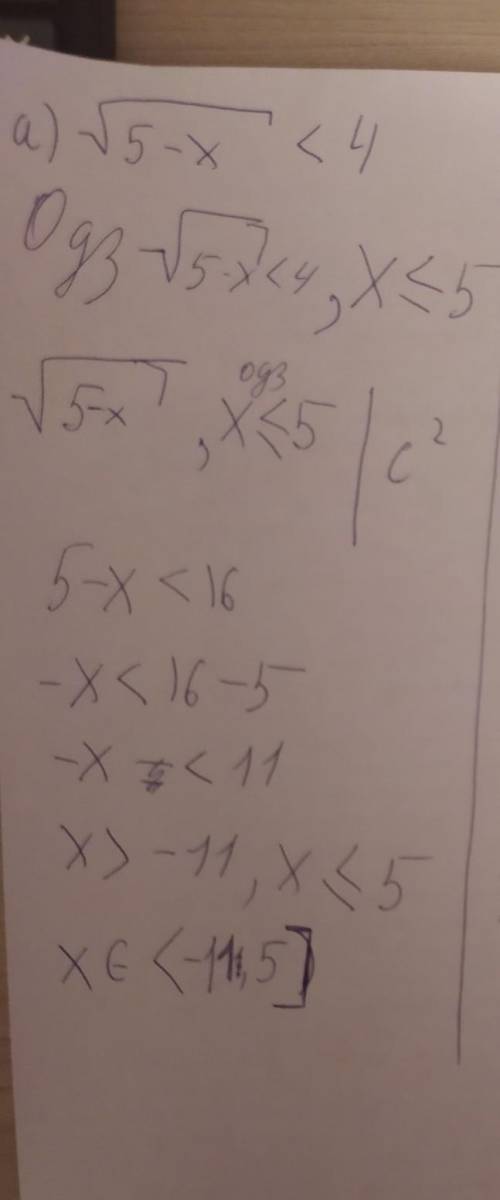 а) √5-x < 4
Одз √5-x < 4, x ≤ 5
одз
√5-x , x ≤ 5 | c²
5-x < 16
-x < 16-5
-x < 11
x > -11, x ≤ 5
x ∈ <-11,5]